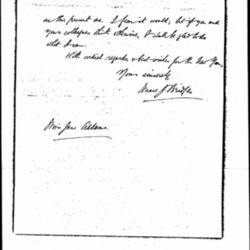 at this point as I fear it would, but if you and
your colleagues think otherwise, I shall be glad to do
what I can.
With cordial regards & best wishes for the New Year,
Yours sincerely
Miss Jane Addams.